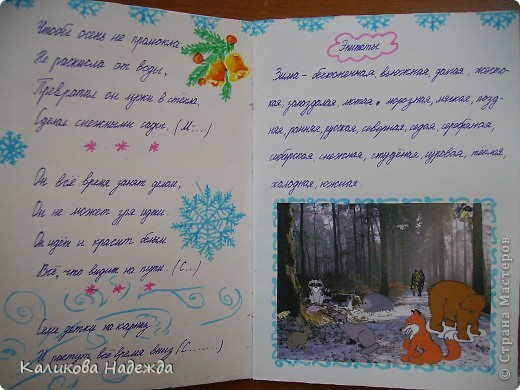 Чтобы осень не промокла,
Не раскисла от воды,
Превратил он лужи в стёкла,
Сделал снежными сады. (М...)
* * *
Он всё время занят делом,
Он не может зря идти.
Он идёт и красит белым
Всё, что видит на пути. (С...)
* * *
Сели детки на карниз
И растут всё время вниз (С.......)
Эпитеты
Зима – бесконечная, вьюжная, долгая, жесто-
кая, запоздалая, лютая, морозная, мягкая, позд-
няя, ранняя, русская, северная, седая, серебряная,
сибирская, снежная, студёная, суровая, тёплая,
холодная, южная.
Каликова Надежда
© Страна Мастеров